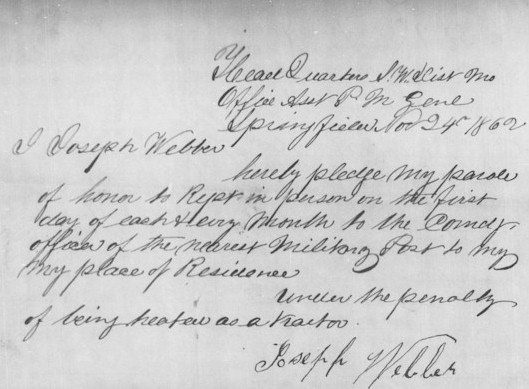 Head Quarters S. W. Dist Mo
Office Asst P M Genl
Springfield Nov 24" 1862
I Joseph Webber
hereby pledge my parole
of honor to Rept in person on the first
day of each & evry Month to the Comdg
officer of the nearest Military Post to my
my place of Residence
under the penalty
of being treated as a traitor.
Joseph Webber